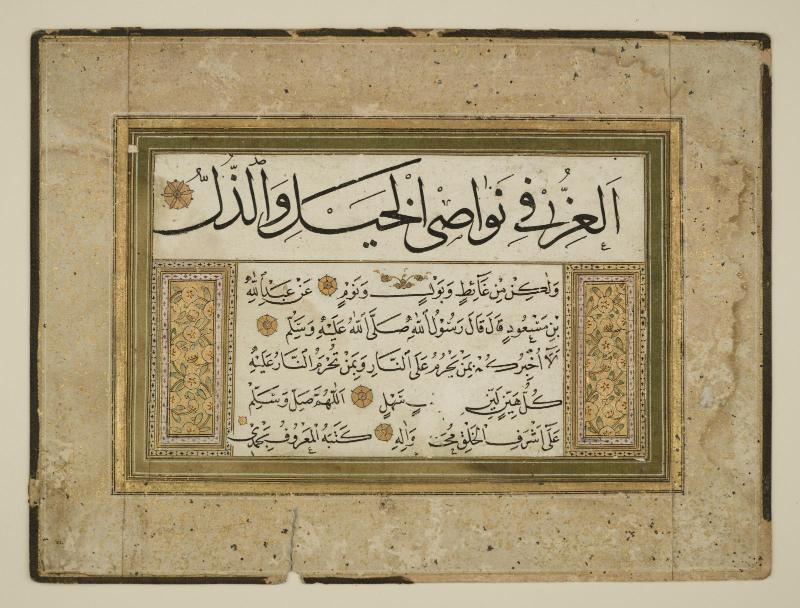 العز في نواصي الخيل والذل
ولكن من غائط وبول ونوم عن عبد الله
بن مسعود قال قال رسول الله صلى الله عليه وسلم
الا اخبركم بمن يحرم على النار وبمن تحرم النار عليه
كل هين لين قريب سهل اللهم صل وسلم
على اشرف الخلق محمد واله كتبه المعروف